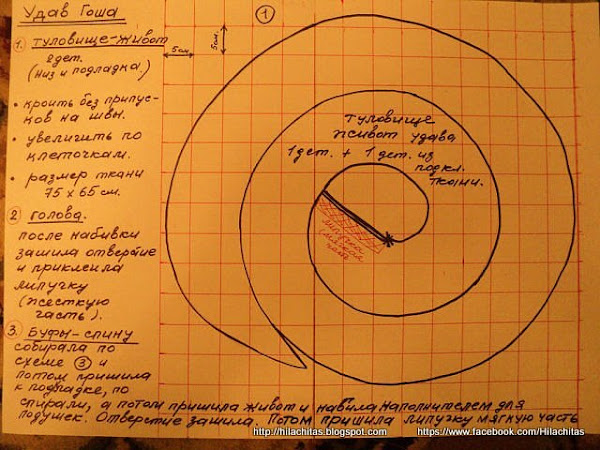 Удав Гоша
1
5см.
5см.
1. туловище-живот
2дет.
(низ и подкладка.)
• кроить без припус-
ков на швы.
• увеличить по
клеточкам.
• размер ткани
75 х 65 см.
2 голова.
после набивки
зашила отверстие
и приклеила
липучку
(жесткую
часть).
3. Буфы-спину
собирала по
схеме 3 и
потом пришила
к подкладке, по
спирали, а потом пришила живот и набила наполнителем для
подушек. Отверстие зашила. Потом пришила липучку мягкую часть
туловище
живот удава
1 дет. + 1 дет. из
подкл.
ткани.
http://hilachitas.blogspot.com
https://www.facebook.com/Hilachitas